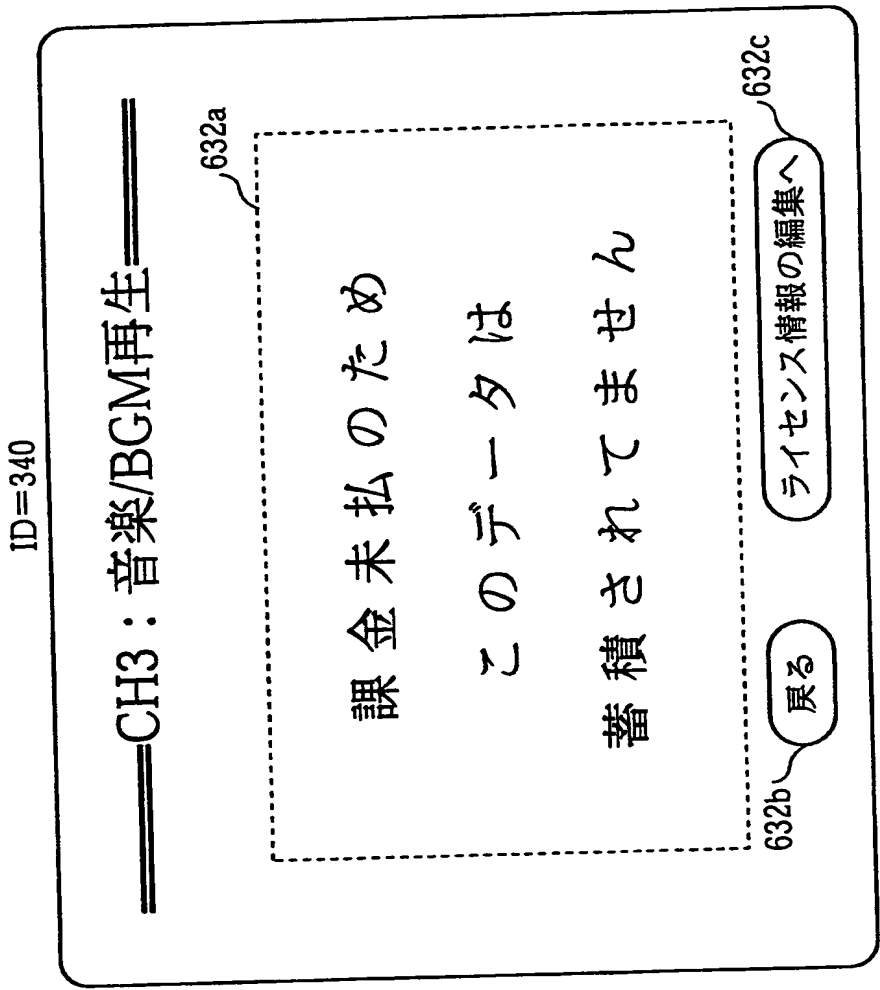 ID=340
CH3：音楽/BGM再生
632a
課金未払のため
このデータは
蓄積されてません
632b
戻る
ライセンス情報の編集へ
632c